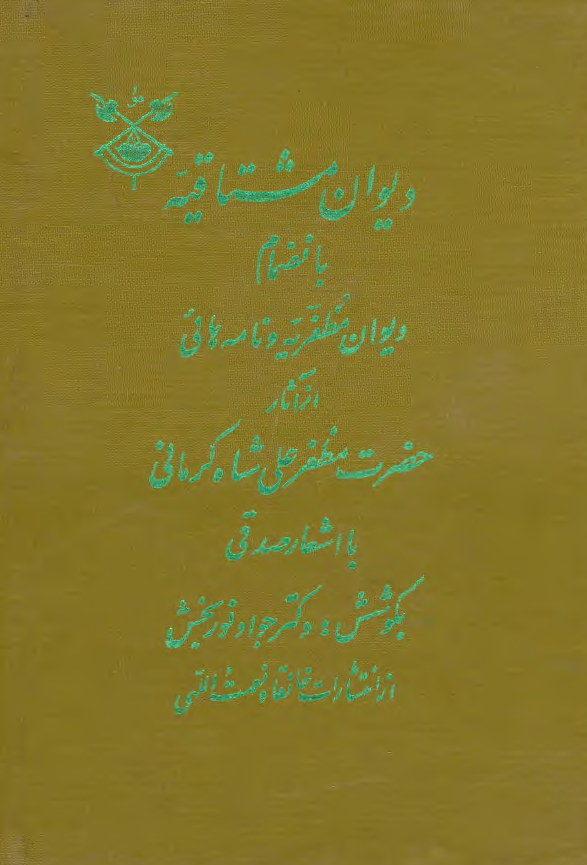 دیوان مشتاقیّه
بانضمام
دیوان مُظفّریّه و نامه هائی
از آثار
حضرت مظفر علی شاه کرمانی
با اشعار صدقی
بکوشش: دکتر جواد نوربخش
از انتشارات خانقاه نعمت اللهی